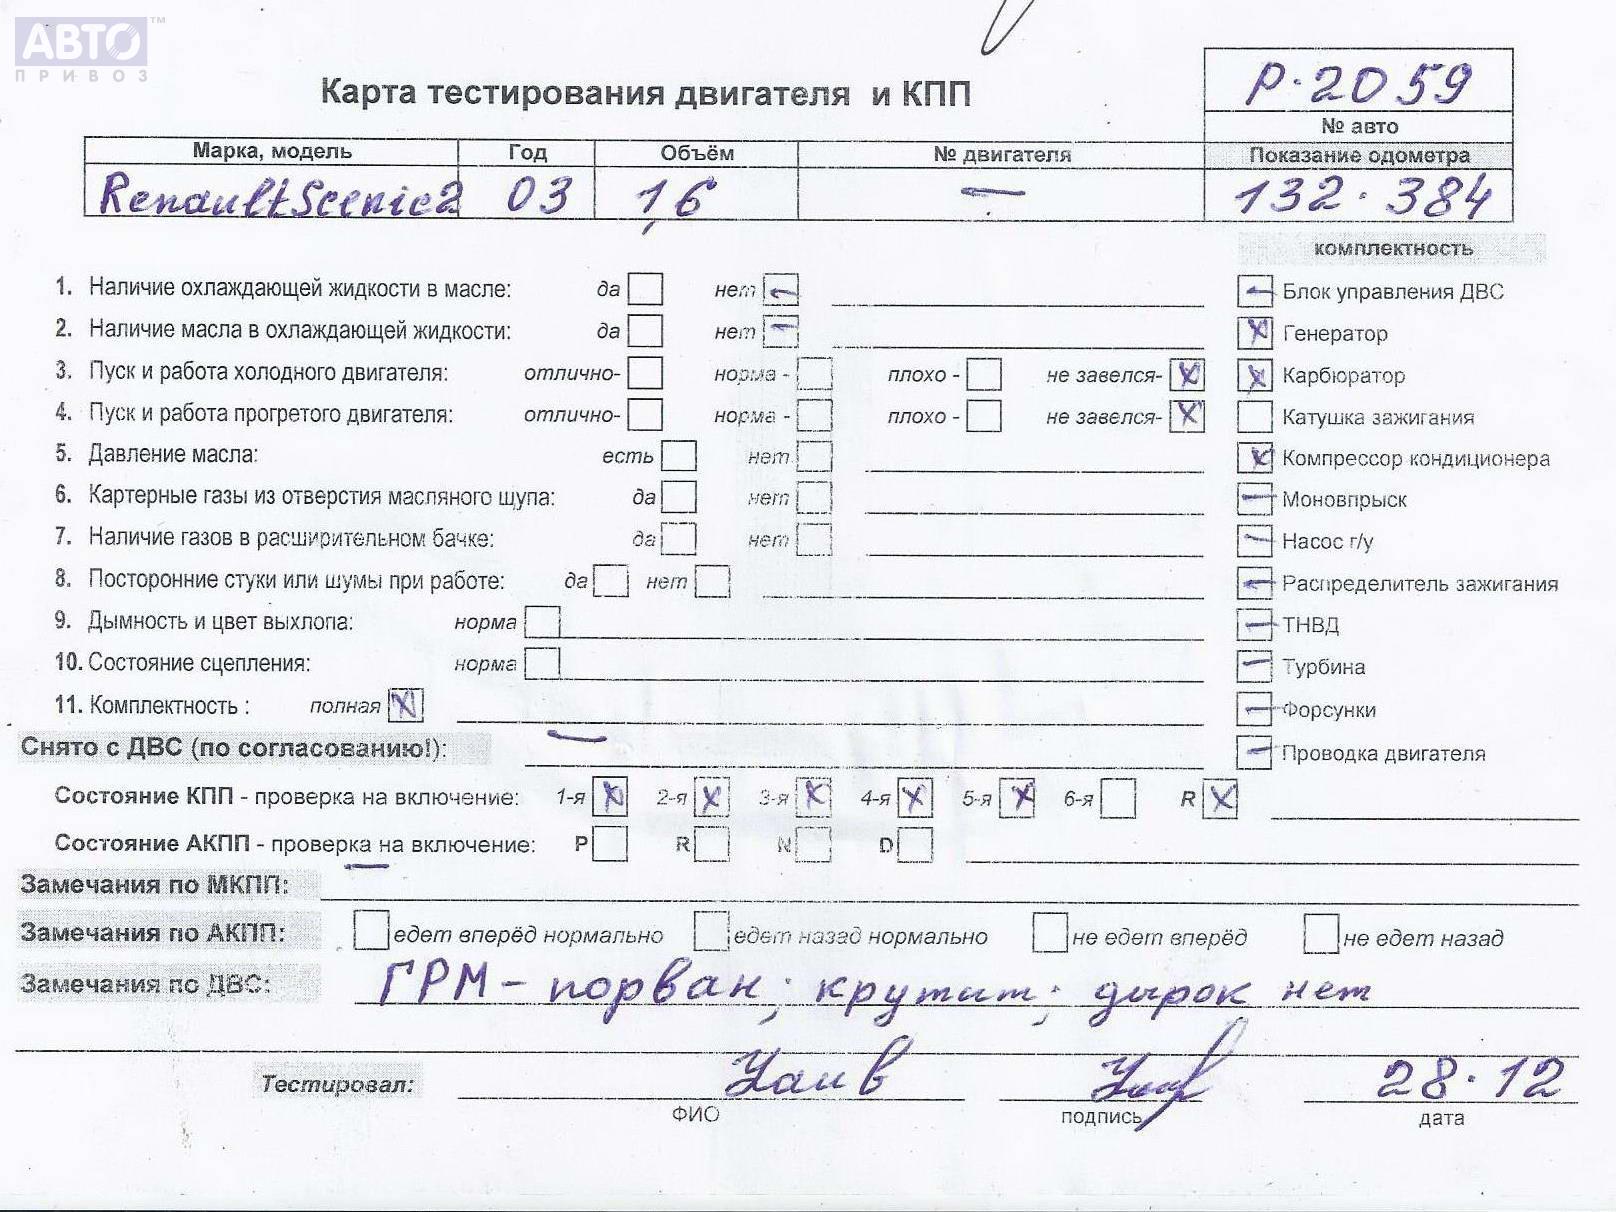 АВТО™
ПРИВОЗ
Карта тестирования двигателя и КПП
Р·2059
№ авто
Марка, модель Год Объём № двигателя Показание одометра
Renault Scenic2 03 1,6 — 132·384
комплектность
1. Наличие охлаждающей жидкости в масле: да нет
2. Наличие масла в охлаждающей жидкости: да нет
3. Пуск и работа холодного двигателя: отлично- норма - плохо - не завелся-
4. Пуск и работа прогретого двигателя: отлично- норма - плохо - не завелся-
5. Давление масла: есть нет
6. Картерные газы из отверстия масляного щупа: да нет
7. Наличие газов в расширительном бачке: да нет
8. Посторонние стуки или шумы при работе: да нет
9. Дымность и цвет выхлопа: норма
10. Состояние сцепления: норма
11. Комплектность : полная
Блок управления ДВС
Генератор
Карбюратор
Катушка зажигания
Компрессор кондиционера
Моновпрыск
Насос г/у
Распределитель зажигания
ТНВД
Турбина
Форсунки
Проводка двигателя
Снято с ДВС (по согласованию!): —
Состояние КПП - проверка на включение: 1-я 2-я 3-я 4-я 5-я 6-я R
Состояние АКПП - проверка на включение: P R N D
Замечания по МКПП: —
Замечания по АКПП: едет вперёд нормально едет назад нормально не едет вперёд не едет назад
Замечания по ДВС: ГРМ - порван; крутит; дырок нет
Тестировал: 28·12
ФИО подпись дата